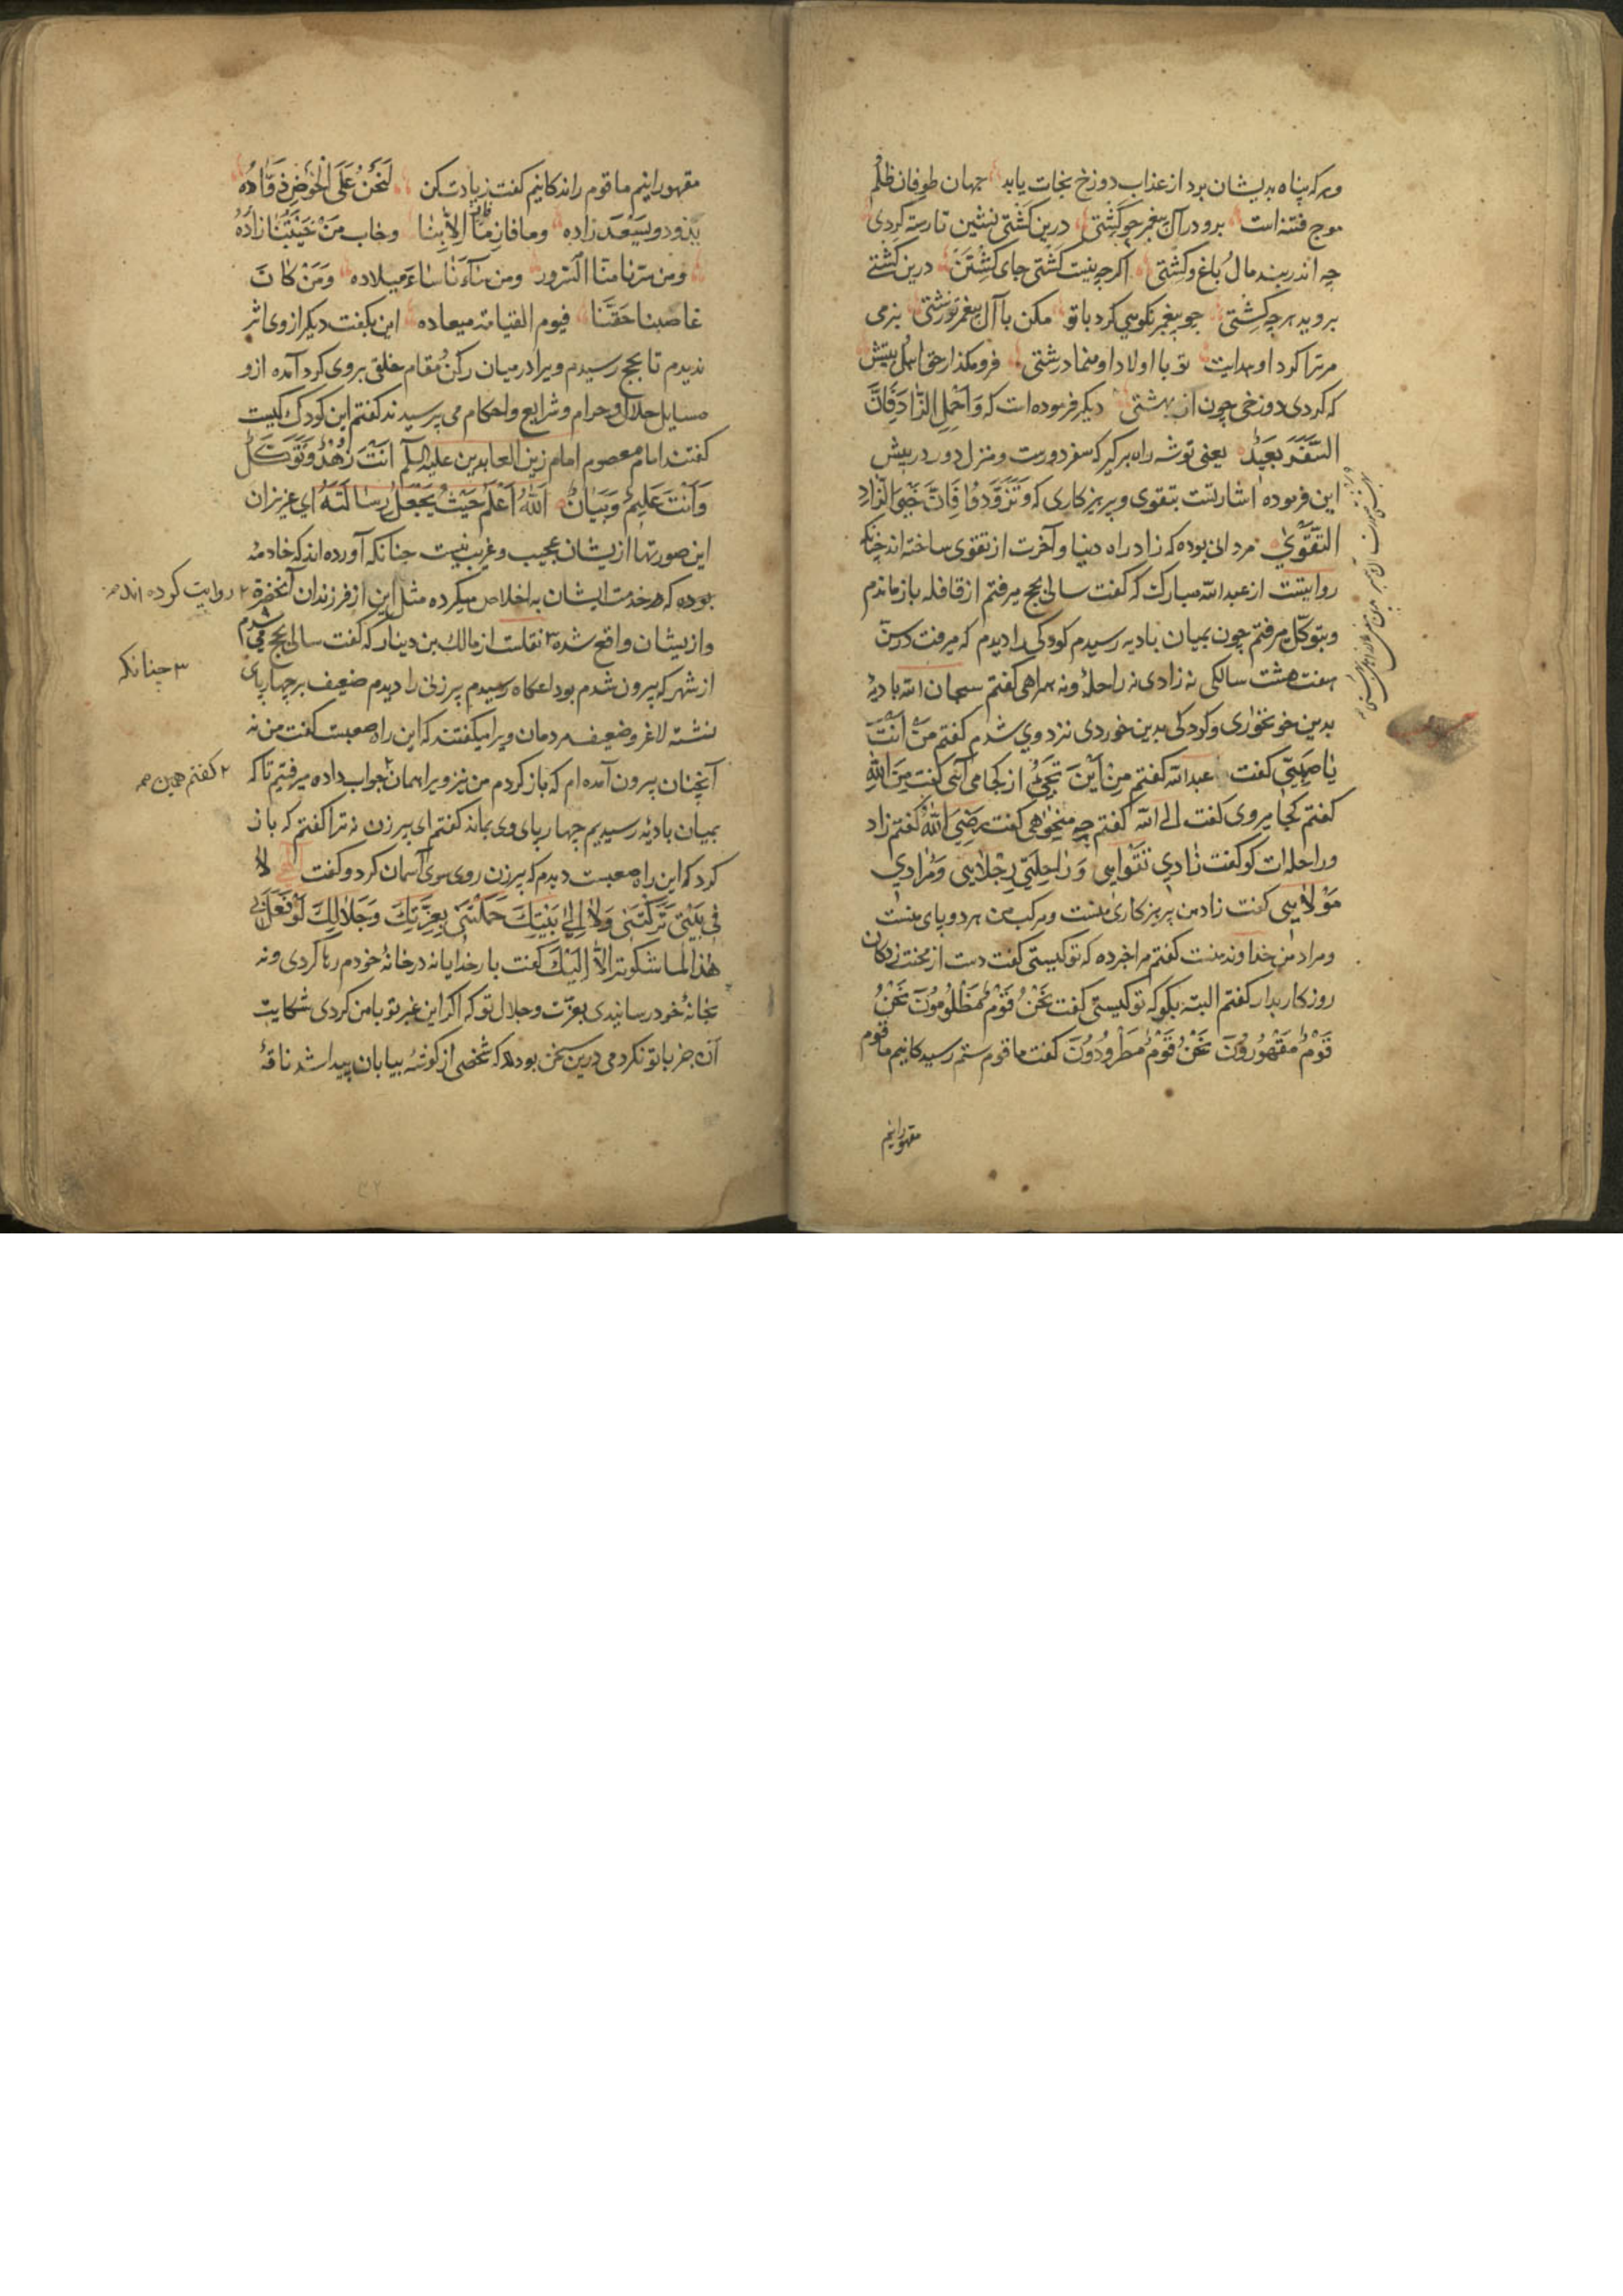 وهر که پناه بدیشان برد از عذاب دوزخ نجات یابد جهان طوفان ظلم
موج فتنه است برو در آل پیغمبر چو کشتی درین کشتی نشین تا رسته کردی
چه اندر بند مال و باغ و کشتی اکرچه نیست کشتی جای کشتن درین کشتی
بروید هرچه کشتی چو پیغمبر نکویی کرد با تو مکن با آل پیغمبر تو زشتی بنرمی
مر ترا کرد او هدایت تو با اولاد او منما درشتی فرو مکذار حق اهل بیتش
که کردی دوزخی چون از بهشتی دیکر فرموده است که وَاَحْمِلِ الزّادَ فَاِنَّ
السَّفَرَ بَعیدٌ یعنی توشه راه برکیر که سفر دورست و منزل دور در پیش
این فرموده اشارتست بتقوی و پرهیزکاری که وَتَزَوَّدُوا فَاِنَّ خَیْرَ الزّادِ
التَّقْوٰی مردانی بوده که زاد راه دنیا و آخرت از تقوی ساخته اند چنانکه
روایتست از عبدالله مبارک که کفت سالی بحج میرفتم از قافله باز ماندم
و بتوکل میرفتم چون بمیان بادیه رسیدم کودکی را دیدم که میرفت در سن
هفت هشت سالکی نه زادی نه راحلهٔ و نه همراهی کفتم سبحان الله بادیهٔ
بدین خونخواری و کودکی بدین خوردی نزد وی شدم کفتم مَنْ اَنْتَ
یا صَبِیّ کفت عبدالله کفتم مِنْ اَیْنَ تَجِیُٔ از کجا می آئی کفت مِنَ اللهِ
کفتم کجا میروی کفت الی الله کفتم چه میخواهی کفت رضیَ اللهُ کفتم زاد
و راحله ات کو کفت زادی تَقْوایی وَ راحِلَتی رِجْلایی وَ مُرادی
مَوْلایی کفت زاد من پرهیزکاری منست و مرکب من هر دو پای منست
و مراد من خداوند منست کفتم مرا خبر ده که تو کیستی کفت دست از محنت زدکان
روزکار بدار کفتم البته بکو که تو کیستی کفت نَحْنُ قَوْمٌ مَظْلُومُونَ نَحْنُ
قَوْمٌ مَقْهُورُونَ نَحْنُ قَوْمٌ مَطْرُودُونَ کفت ما قوم ستم رسیدکانیم ما قوم
مقهورانیم
مقهورانیم ما قوم راندکانیم کفت زیادت کن لَنَحْنُ عَلَی الْحَوْضِ ذَوّادُهٗ
نذود و یسعد زاده وما فاز من فاز الا بنا وخاب مَنْ حُبُّنا زادُهٗ
ومن سرنا منا السرور ومن ساءنا ساءَ میلاده وَمَنْ کانَ
غاصبنا حَقَّنا فیوم القیامة میعاده این بکفت دیکر از وی اثر
ندیدم تا بحج رسیدم ویرا در میان رکن و مقام خلقی بر وی کرد آمده ازو
مسایل حلال و حرام و شرایع و احکام می پرسیدند کفتم این کودک کیست
کفتند امام معصوم امام زین العابدین علیه السلم اَنْتَ زُهْدٌ وَتَوَکُّلٌ
وَاَنْتَ عَلیمٌ وَبَیانٌ اَللهُ اَعْلَمُ حَیْثُ یَجْعَلُ رِسالَتَهُ ای عزیزان
این صورتها ازیشان عجیب و غریب نیست چنانکه آورده اند که خادمه
بوده که در خدمت ایشان به اخلاص میکرده مثل این از فرزندان آنحضرة ۲ روایت کرده اند
و ازیشان واقع شده ۳ نقلست از مالک بن دینار که کفت سالی بحج می شدم
۳ چنانکه
از شهر که بیرون شدم بوداعکاه رسیدم پیرزنی را دیدم ضعیف بر چهارپای
نشسته لاغر و ضعیف مردمان ویرا میکفتند که این راه صعبست کفت من نه
آنچنان بیرون آمده ام که باز کردم من نیز ویرا همان ۲ جواب داده میرفتیم تا که
۲ کفتم همین
بمیان بادیه رسیدیم چهارپای وی بماند کفتم ای پیرزن نه ترا کفتم که باز
کرد که این راه صعبست دیدم که پیرزن روی سوی آسمان کرد و کفت الهی لا
فی بَیْتی تَرَکْتَنی وَلا اِلی بَیْتِکَ حَمَلْتَنی بِعِزَّتِکَ وَجَلالِکَ لَوْ فَعَلَ بی
هٰذا لَما شکوته الاّ اِلَیْکَ کفت بار خدایا نه در خانهٔ خودم رها کردی و نه
بخانهٔ خود رسانیدی بعزت و جلال تو که اکر این غیر تو با من کردی شکایت
آن جز با تو نکردمی درین سخن بود که شخصی از کوشهٔ بیابان پیدا شد ناقهٔ